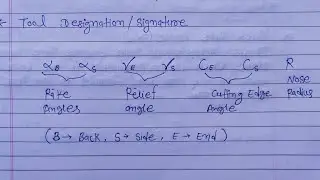 Tool Designation/Signature
α_B α_S γ_E γ_S C_E C_S R
Rake Relief Cutting Edge Nose Radius
Angles angle Angle
(B → Back, S → Side, E → End)